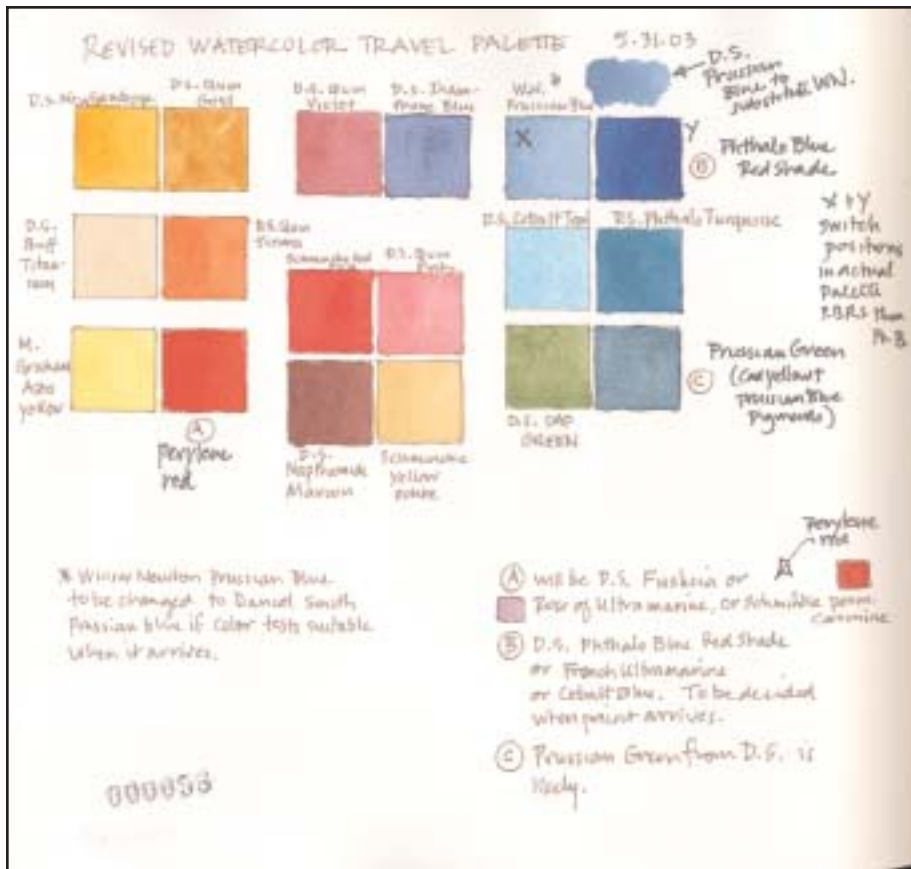 REVISED WATERCOLOR TRAVEL PALETTE
5.31.03
D.S.
Prussian
Blue to
substitute W.N.
D.S. New Gamboge
D.S. Quin
Gold
D.S. Quin
Violet
D.S. Indan-
throne Blue
W.N. *
Prussian Blue
X
Y
B
Phthalo Blue
Red Shade
D.S.
Buff
Titan-
ium
D.S. Quin
Sienna
Schmincke
D.S. Quin
D.S. Cobalt Teal
D.S. Phthalo Turquoise
X & Y
switch
positions
in Actual
palette
P.B.R.S. then
Pr. B
M.
Graham
Azo
yellow
A
Perylene
red
D.S.
Napthamide
Maroon
Schmincke
yellow
D.S. SAP
GREEN
C
Prussian Green
(Cad yellow &
prussian Blue
Pigments)
* Winsor Newton Prussian Blue
to be changed to Daniel Smith
Prussian blue if color tests suitable
when it arrives.
Perylene
red
A will be D.S. Fushcia or
Rose of Ultramarine, or Schmincke perm.
Carmine
B D.S. Phthalo Blue Red Shade
or French Ultramarine
or Cobalt Blue. To be decided
when paint arrives.
C Prussian Green from D.S. is
likely.
000056